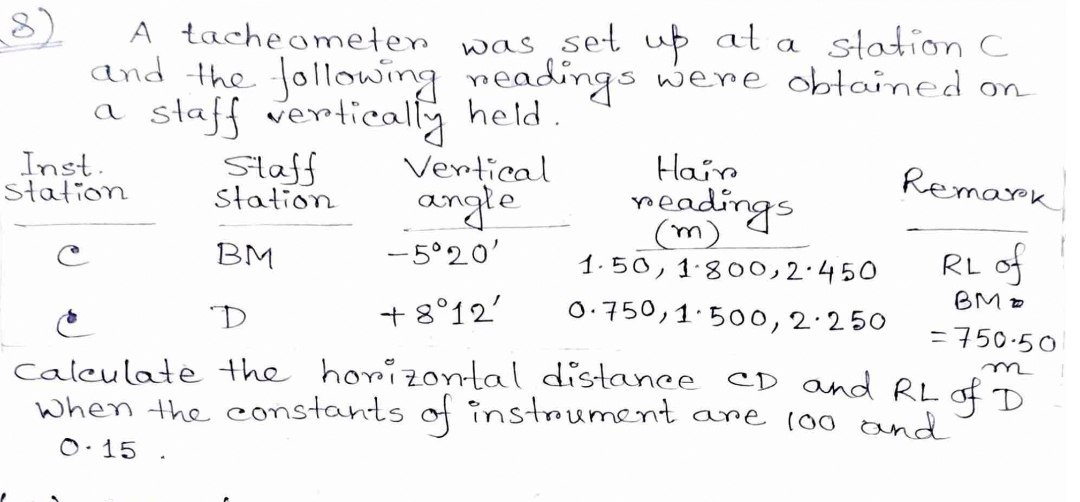 8) A tacheometer was set up at a station C
and the following readings were obtained on
a staff vertically held.
Inst. station Staff station Vertical angle Hair readings (m) Remark
C BM -5°20' 1.50, 1.800, 2.450 RL of BM
C D +8°12' 0.750, 1.500, 2.250 = 750.50 m
Calculate the horizontal distance CD and RL of D
when the constants of instrument are 100 and
0.15 .